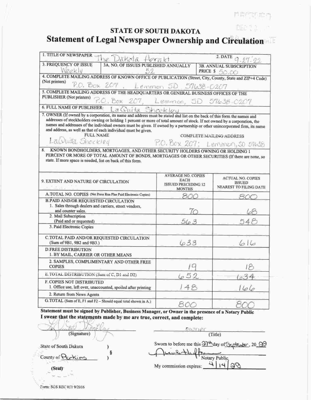 STATE OF SOUTH DAKOTA
Statement of Legal Newspaper Ownership and Circulation
1. TITLE OF NEWSPAPER The Dakota Herald
2. DATE
1. FREQUENCY OF ISSUE Weekly
3A. NO. OF ISSUES PUBLISHED ANNUALLY 52
3B. ANNUAL SUBSCRIPTION PRICE $
4. COMPLETE MAILING ADDRESS OF KNOWN OFFICE OF PUBLICATION (Street, City, County, State and ZIP+4 Code) (Not Printers)
P.O. Box 207 Lemmon, SD 57638-0207
5. COMPLETE MAILING ADDRESS OF THE HEADQUARTERS OR GENERAL BUSINESS OFFICES OF THE PUBLISHER (Not Printers)
P.O. Box 207 Lemmon, SD 57638-0207
6. FULL NAME OF PUBLISHER: LaQuita Shockley
7. OWNER (If owned by a corporation, its name and address must be stated and
FULL NAME
COMPLETE MAILING ADDRESS
LaQuita Shockley P.O. Box 207 Lemmon, SD 57638
8. KNOWN BONDHOLDERS, MORTGAGES, AND OTHER SECURITY HOLDERS OWNING OR HOLDING 1 PERCENT OR MORE OF TOTAL AMOUNT OF BONDS, MORTGAGES OR OTHER SECURITIES (If there are none, so state. If more space is needed, list on back of this form.
9. EXTENT AND NATURE OF CIRCULATION
AVERAGE NO. COPIES EACH ISSUED PRECEDING 12 MONTHS
ACTUAL NO. COPIES ISSUED NEAREST TO FILING DATE
A. TOTAL NO. COPIES 800 800
B. PAID AND/OR REQUESTED CIRCULATION
1. Sales through dealers and carriers, street vendors, and counter sales. 70 68
2. Mail Subscription (Paid and or requested) 563 548
3. Paid Electronic Copies
C. TOTAL PAID AND/OR REQUESTED CIRCULATION (Sum of 9B1, 9B2 and 9B3.) 633 616
D. FREE DISTRIBUTION
1. BY MAIL, CARRIER OR OTHER MEANS
2. SAMPLES, COMPLIMENTARY AND OTHER FREE COPIES 19 18
E. TOTAL DISTRIBUTION (Sum of C, D1 and D2) 652 634
F. COPIES NOT DISTRIBUTED
1. Office use, left over, unaccounted, spoiled after printing 148 166
2. Return from News Agents
G. TOTAL (Sum of E, F1 and F2 - Should equal total shown in A.) 800 800
Statement must be signed by Publisher, Business Manager, or Owner in the presence of a Notary Public
I swear that the statements made by me are true, correct, and complete:
(Signature)
(Title)
State of South Dakota
County of Perkins
Sworn to before me this day of September, 20
Notary Public
(Seal)
My commission expires: